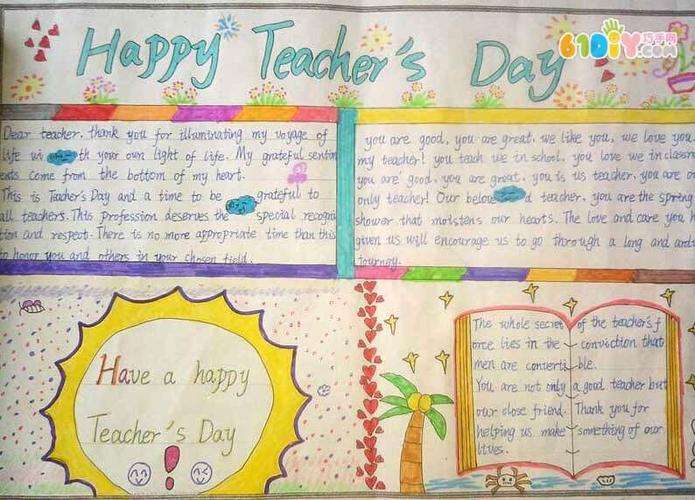 Happy Teacher's Day
61DIY巧手网
.com
Dear teacher, thank you for illuminating my voyage of
life wi th your own light of life. My grateful sentim
ents come from the bottom of my heart.
This is Tacher's Day and a time to be grateful to
all teachers. This profession deserves the special recogni
tion and respect. There is no more appropriate time than this
to honor you and others in your chosen field.
you are good, you are great, we like you, we love you
my teacher! you teach we in school, you love we in classm
you are good, you are great, you is us teacher, you are ou
only teacher! Our belove d teacher, you are the spring
shower that moistens our hearts. The love and care you h
given us will encourage us to go through a long and ard
journey.
Have a happy
Teacher's Day
The whole secret of the teacher's f
orce lies in the conviction that
men are converti ble.
You are not only a good teacher but
our close friend. Thank you for
helping us make something of our
lives.